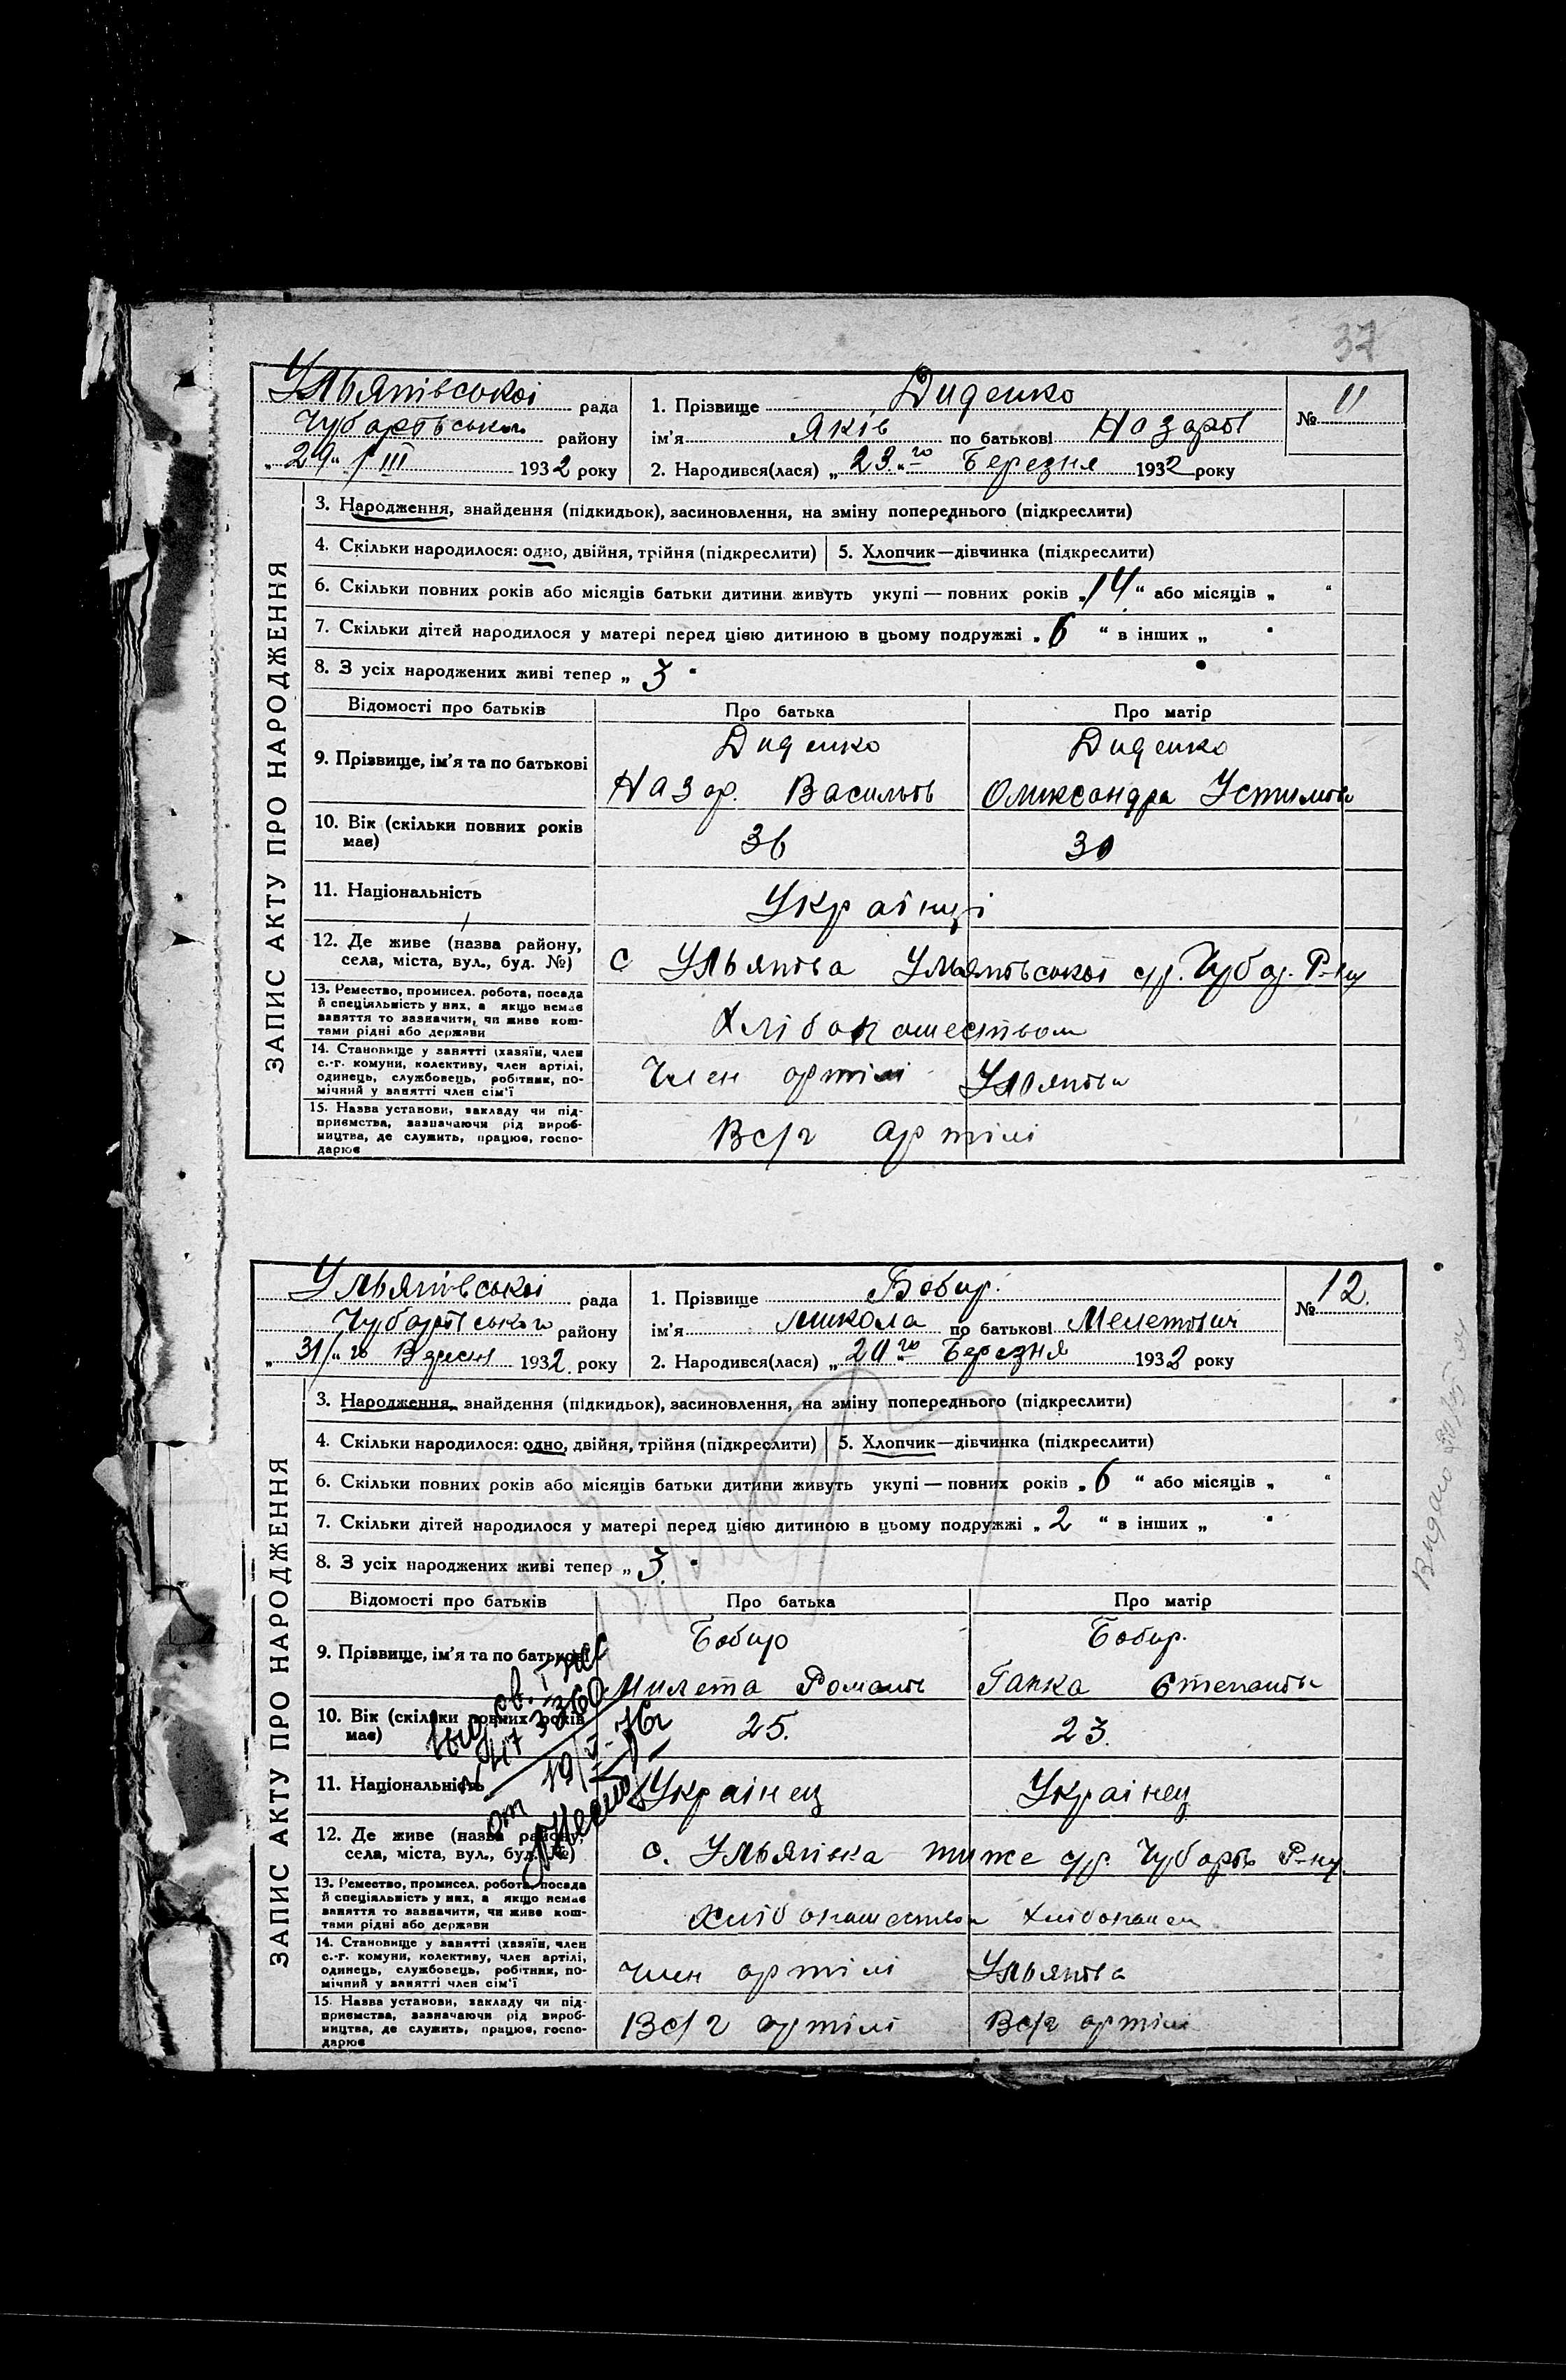 37
Ульянівської рада
Чубарівського району
„29“ / III 1932 року
1. Прізвище Диденко
ім'я Яків по батькові Назарів
№ 11
2. Народився(лася) „23“ го Березня 1932 року
ЗАПИС АКТУ ПРО НАРОДЖЕННЯ
3. Народження, знайдення (підкидьок), засиновлення, на зміну попереднього (підкреслити)
4. Скільки народилося: одно, двійня, трійня (підкреслити) 5. Хлопчик—дівчинка (підкреслити)
6. Скільки повних років або місяців батьки дитини живуть укупі — повних років „14“ або місяців „ “
7. Скільки дітей народилося у матері перед цією дитиною в цьому подружжі „6“ в інших „ “
8. З усіх народжених живі тепер „3“
Відомості про батьків Про батька Про матір
9. Прізвище, ім'я та по батькові
Диденко Диденко
Назар. Васильов Олександра Устимов
10. Вік (скільки повних років
має)
36 30
11. Національність Українці
12. Де живе (назва району,
села, міста, вул., буд. №)
с Ульянівка Ульянівської с/р. Чубар. Р-ну
13. Ремество, промисел, робота, посада
й спеціяльність у них, а якщо немає
заняття то зазначити, чи живе кош-
тами рідні або держави
Хлібопашеством
14. Становище у занятті (хазяїн, член
с.-г. комуни, колективу, член артілі,
одинець, службовець, робітник, по-
мічний у занятті член сім'ї
Член артілі Ульянівка
15. Назва установи, закладу чи під-
приємства, зазначаючи рід вироб-
ництва, де служить, працює, госпо-
дарює
В с/г артілі
Ульянівської рада
Чубарівського району
„31“ го Березня 1932 року
1. Прізвище Бобир.
ім'я Микола по батькові Мелетович
№ 12.
2. Народився(лася) „20“ го Березня 1932 року
ЗАПИС АКТУ ПРО НАРОДЖЕННЯ
3. Народження, знайдення (підкидьок), засиновлення, на зміну попереднього (підкреслити)
4. Скільки народилося: одно, двійня, трійня (підкреслити) 5. Хлопчик—дівчинка (підкреслити)
6. Скільки повних років або місяців батьки дитини живуть укупі — повних років „6“ або місяців „ “
7. Скільки дітей народилося у матері перед цією дитиною в цьому подружжі „2“ в інших „ “
8. З усіх народжених живі тепер „3.“
Відомості про батьків Про батька Про матір
9. Прізвище, ім'я та по батькові
Бобир Бобир.
Милета Романов Гапка Степанов
10. Вік (скільки повних років
має)
25. 23.
11. Національність Українец Українец
12. Де живе (назва району,
села, міста, вул., буд. №)
с. Ульянівка тиже с/р. Чубарів Р-ну.
13. Ремество, промисел, робота, посада
й спеціяльність у них, а якщо немає
заняття то зазначити, чи живе кош-
тами рідні або держави
Хлібопашество
14. Становище у занятті (хазяїн, член
с.-г. комуни, колективу, член артілі,
одинець, службовець, робітник, по-
мічний у занятті член сім'ї
член артілі Ульянівка
15. Назва установи, закладу чи під-
приємства, зазначаючи рід вироб-
ництва, де служить, працює, госпо-
дарює
В с/г артілі В с/г артілі
Видано